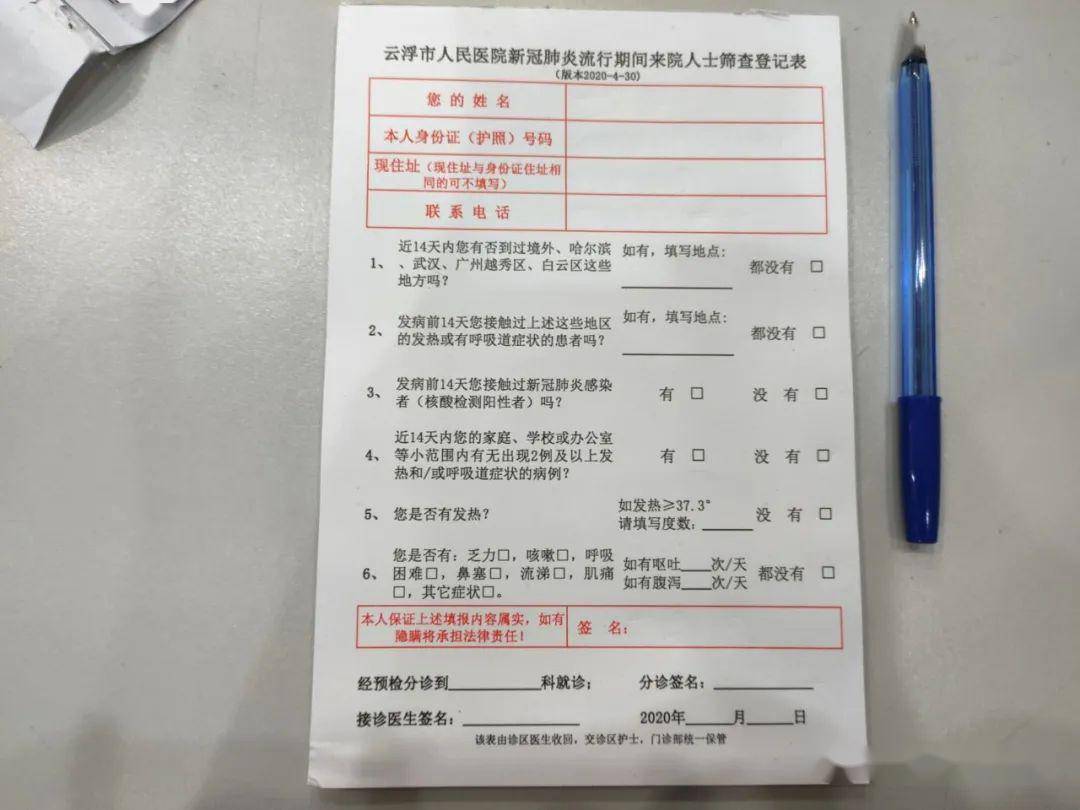 云浮市人民医院新冠肺炎流行期间来院人士筛查登记表
（版本2020-4-30）
您 的 姓 名
本人身份证（护照）号码
现住址（现住址与身份证住址相
同的可不填写）
联 系 电 话
1、 近14天内您有否到过境外、哈尔滨
、武汉、广州越秀区、白云区这些
地方吗？
如有，填写地点：
都没有 □
2、 发病前14天您接触过上述这些地区
的发热或有呼吸道症状的患者吗？
如有，填写地点：
都没有 □
3、 发病前14天您接触过新冠肺炎感染
者（核酸检测阳性者）吗？
有 □ 没 有 □
4、 近14天内您的家庭、学校或办公室
等小范围内有无出现2例及以上发
热和/或呼吸道症状的病例？
有 □ 没 有 □
5、 您是否有发热？
如发热≥37.3°
请填写度数：______
没 有 □
6、 您是否有：乏力□，咳嗽□，呼吸
困难□，鼻塞□，流涕□，肌痛
□，其它症状□。
如有呕吐____次/天
如有腹泻____次/天
都没有 □
本人保证上述填报内容属实，如有
隐瞒将承担法律责任！
签 名：
经预检分诊到__________科就诊； 分诊签名：__________
接诊医生签名：__________ 2020年_____月_____日
该表由诊区医生收回，交诊区护士，门诊部统一保管